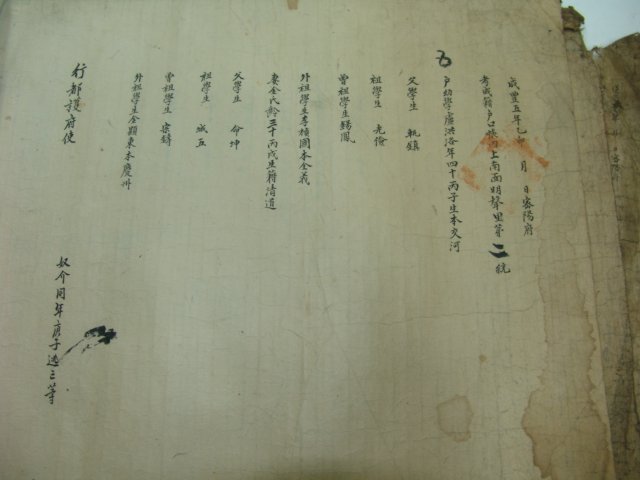 咸豊五年乙卯 月 日密陽府
考成籍戶口帳內上南面明聲里第二統
五 戶幼學盧洪洛年四十丙子生本交河
父學生 執鎮
祖學生 光儉
曾祖學生錫鳳
外祖學生李楨國本全義
妻金氏齡三十丙戌生籍清道
父學生 命坤
祖學生 城五
曾祖學生
外祖學生金顯東本慶州
奴介同年庚子逃亡等
行都護府使